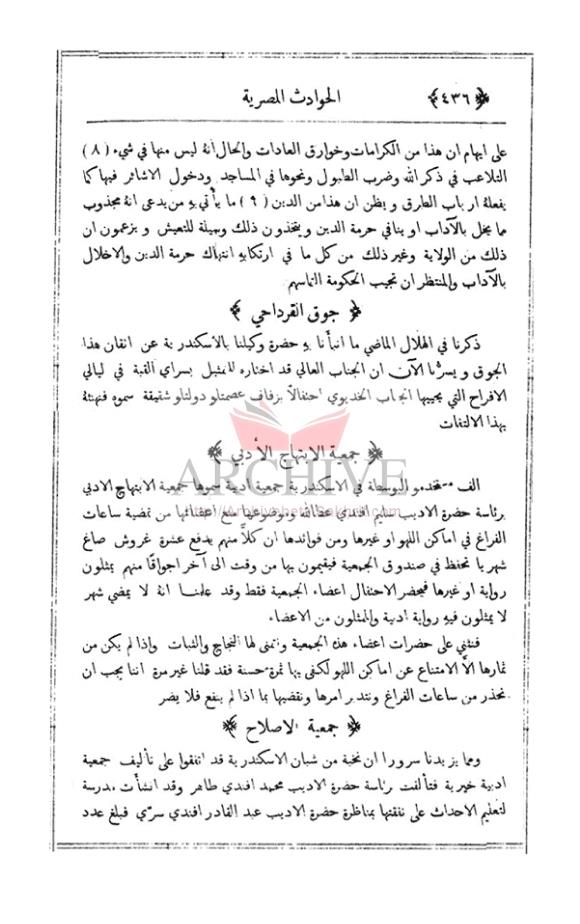 ﴿٤٣٦﴾ الحوادث المصرية
على ايهام ان هذا من الكرامات وخوارق العادات والحال انهُ ليس منها في شيء (٨)
التلاعب في ذكر الله وضرب الطبول ونحوها في المساجد ودخول الاشائر فيها كما
يفعلهُ ارباب الطرق ويظن ان هذا من الدين (٩) ما يأتي بهِ من يدعى انهُ مجذوب
مما يخل بالآداب او ينافي حرمة الدين ويتخذون ذلك وسيلة للتعيش ويزعمون ان
ذلك من الولاية وغير ذلك من كل ما في ارتكابهِ انتهاك حرمة الدين والاخلال
بالآداب والمنتظر ان تجيب الحكومة التماسهم
﴿ جوق القرداحي ﴾
ذكرنا في الهلال الماضي ما انبأنا بهِ حضرة وكيلنا بالاسكندرية عن اتقان هذا
الجوق ويسرُّنا الآن ان الجناب العالي قد اختاره للتمثيل بسراي القبة في ليالي
الافراح التي يحييها الجناب الخديوي احتفالاً بزفاف عصمتلو دولتلو شقيقة سموه فنهنئهُ
بهذا الالتفات
﴿ جمعية الابتهاج الأدبي ﴾
الف مستخدمو البوسطة في الاسكندرية جمعية ادبية سموها جمعية الابتهاج الادبي
برئاسة حضرة الاديب سليم افندي عطاالله وموضوعها منع اعضائها من تمضية ساعات
الفراغ في اماكن اللهو او غيرها ومن فوائدها ان كلاًّ منهم يدفع عشرة غروش صاغ
شهريا تحفظ في صندوق الجمعية فيقيمون بها من وقت الى آخر اجواقًا منهم يمثلون
رواية او غيرها فيحضر الاحتفال اعضاء الجمعية فقط وقد علمنا انهُ لا يمضي شهر
لا يمثلون فيهِ رواية ادبية والممثلون من الاعضاء
فنثني على حضرات اعضاء هذه الجمعية ونتمنى لها النجاح والثبات واذا لم يكن من
ثمارها الاَّ الامتناع عن اماكن اللهو لكفى بها ثمرة حسنة فقد قلنا غير مرة اننا يجب ان
نحذر من ساعات الفراغ ونتدبر امرها ونقضيها بما اذا لم ينفع فلا يضر
﴿ جمعية الاصلاح ﴾
ومما يزيدنا سرورا ان نخبة من شبان الاسكندرية قد اتفقوا على تأليف جمعية
ادبية خيرية فتألفت برئاسة حضرة الاديب محمد افندي طاهر وقد انشأت مدرسة
لتعليم الاحداث على نفقتها بمناظرة حضرة الاديب عبد القادر افندي سرّي فبلغ عدد
ARCHIVE